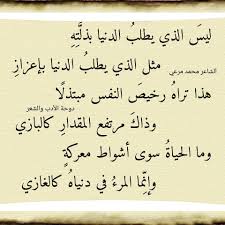 ليسَ الذي يطلبُ الدنيا بذلَّتِهِ
مثل الذي يطلبُ الدنيا بإعزازِ
الشاعر محمد مرعي
هذا تراهُ رخيصَ النفس مبتذلًا
دوحة الأدب والشعر
وذاكَ مرتفع المقدارِ كالبازي
وما الحياةُ سوى أشواط معركةٍ
وإنّما المرءُ في دنياهُ كالغازي